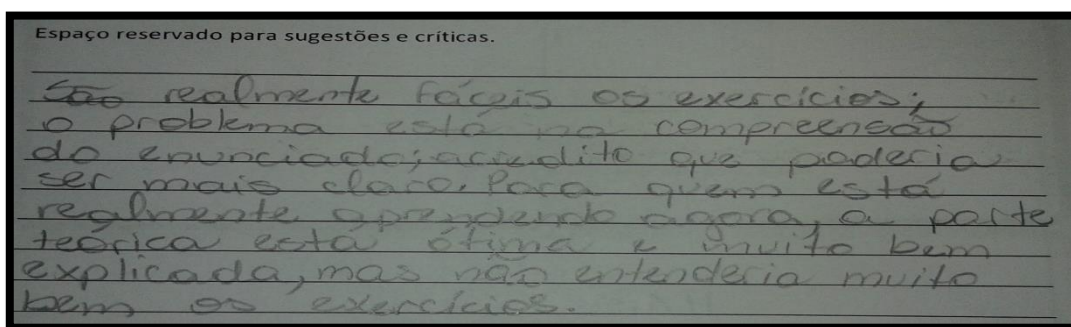 Espaço reservado para sugestões e críticas.
São realmente fáceis os exercícios;
o problema está na compreensão
do enunciado; acredito que poderia
ser mais claro. Para quem está
realmente aprendendo agora, a parte
teórica está ótima e muito bem
explicada, mas não entenderia muito
bem os exercícios.